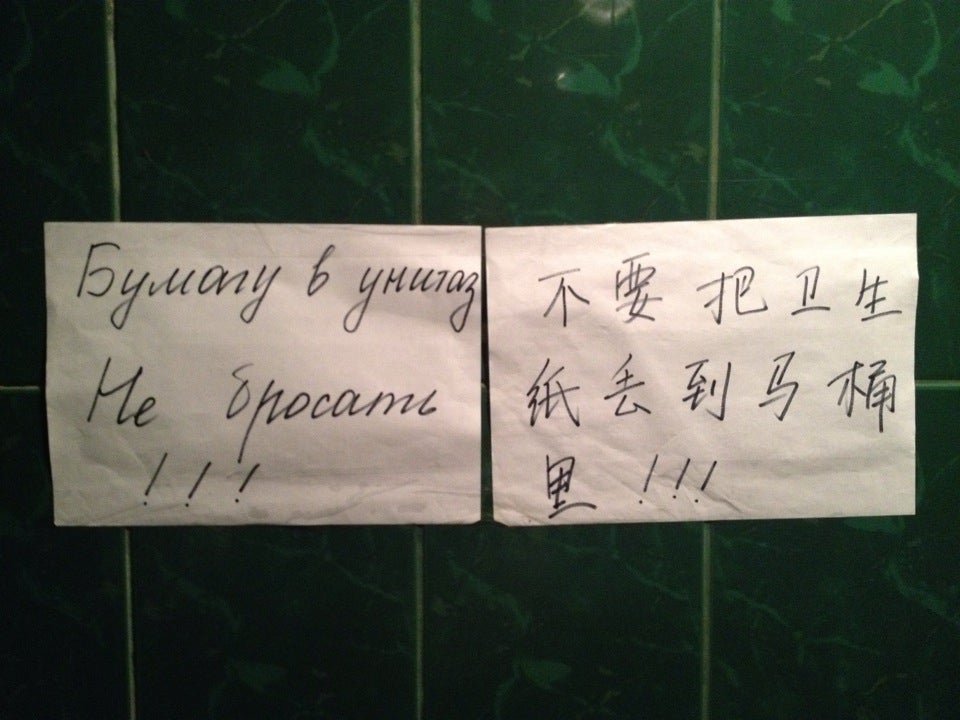 Бумагу в унитаз
Не бросать
!!!
不要把卫生
纸丢到马桶
里!!!